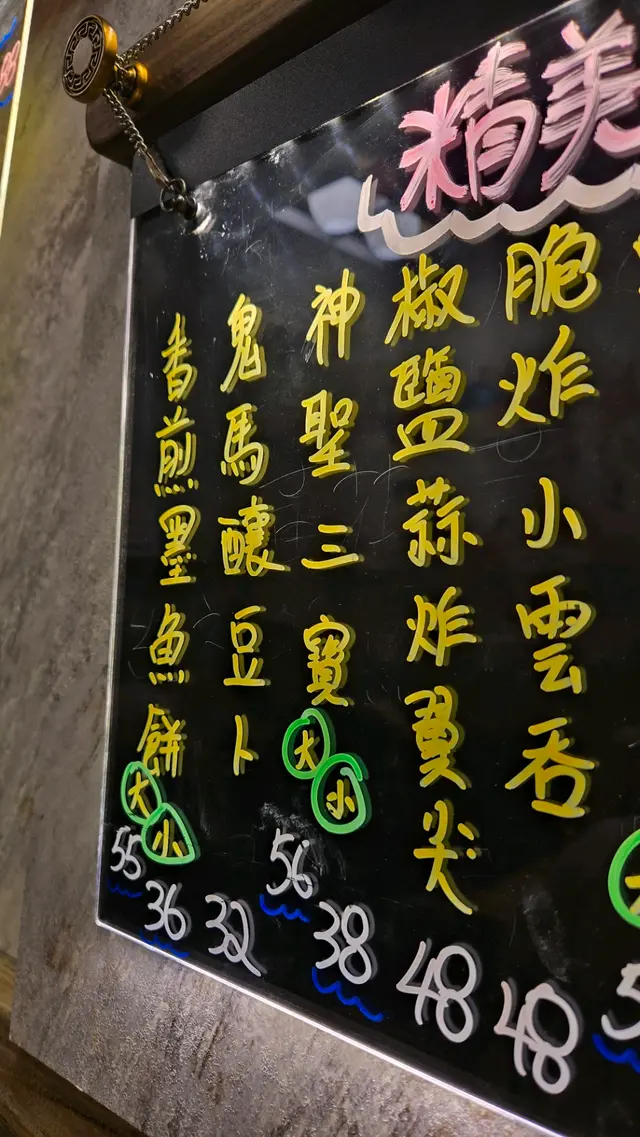 精美
脆炸小雲吞
48
椒鹽蒜炸翼尖
48
神聖三寶
大 小
56 38
鬼馬釀豆卜
32
香煎墨魚餅
大 小
55 36